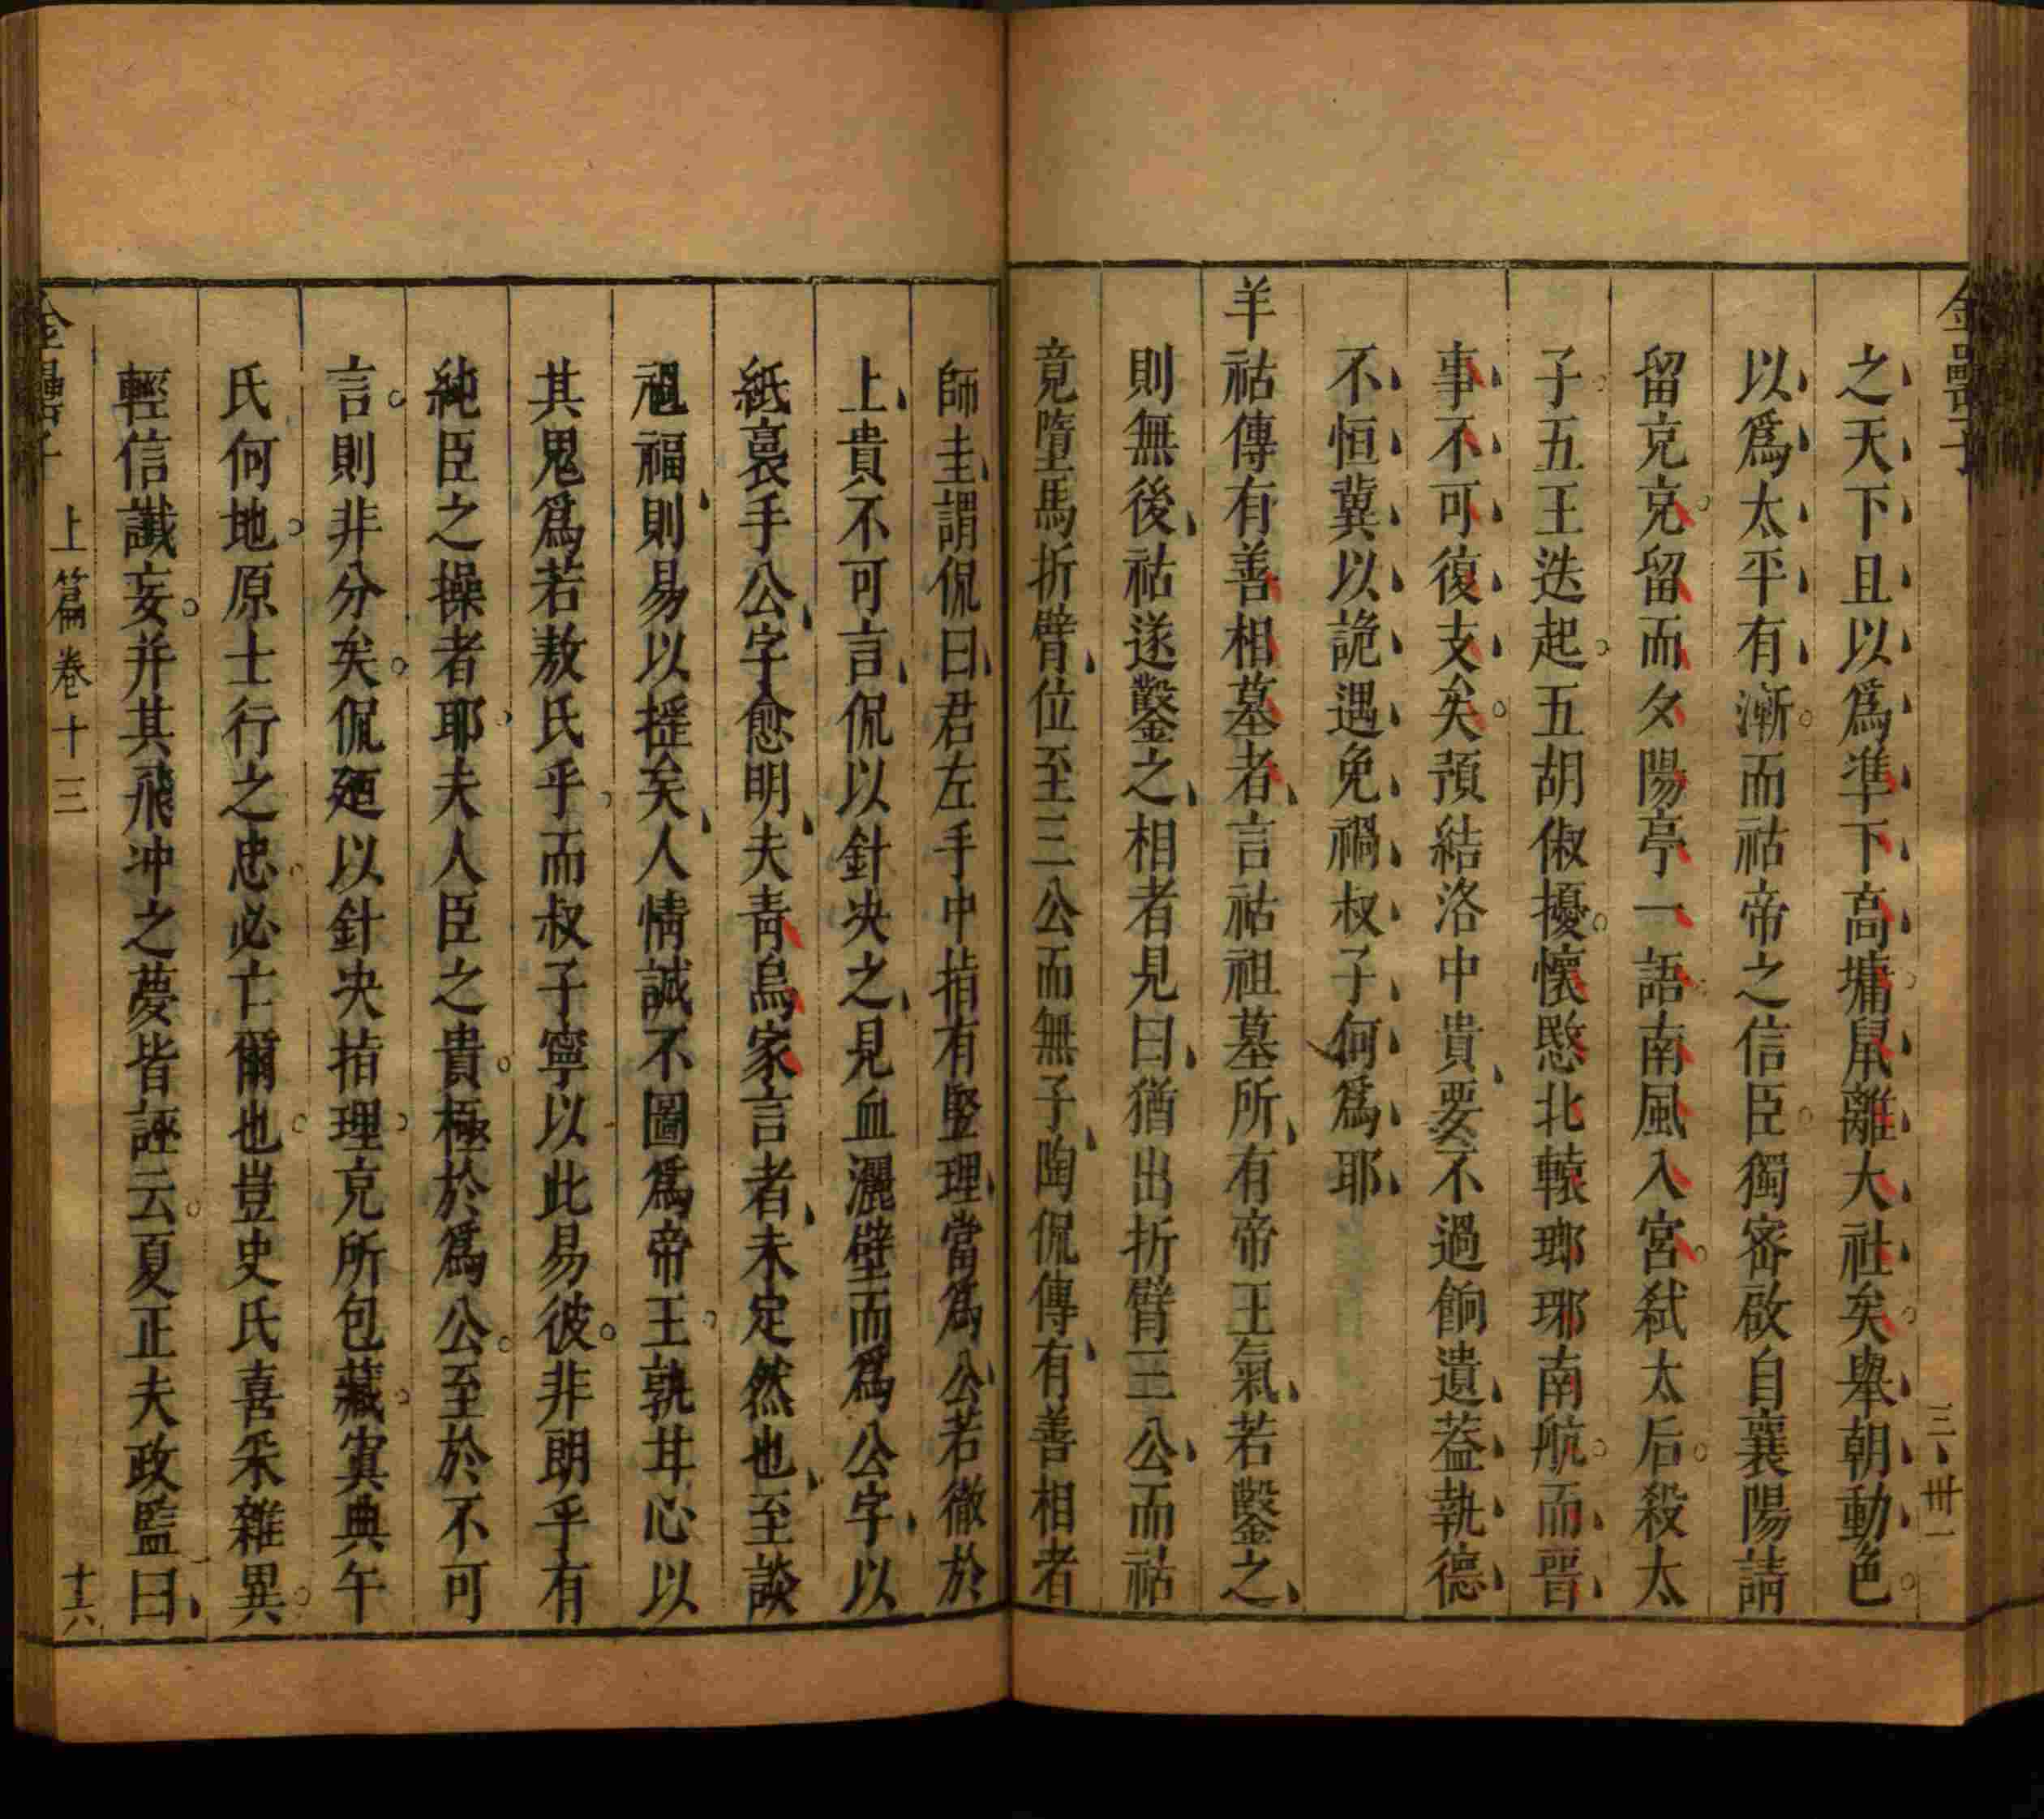 金罍子
三 卅一
之天下且以爲準下高墉鼠離大社矣舉朝動色
以爲太平有漸而祜帝之信臣獨密啟自襄陽請
留克克留而夕陽亭一語南風入宮弑太后殺太
子五王迭起五胡俶擾懷愍北轅瑯琊南航而晉
事不可復支矣預結洛中貴要不過餉遺葢執德
不恒冀以詭遇免禍叔子何爲耶
羊祜傳有善相墓者言祜祖墓所有帝王氣若鑿之
則無後祜遂鑿之相者見曰猶出折臂三公而祜
竟墮馬折臂位至三公而無子陶侃傳有善相者
師圭謂侃曰君左手中指有竪理當爲公若徹於
上貴不可言侃以針决之見血灑壁而爲公字以
紙裛手公字愈明夫青烏家言者未定然也至談
禍福則易以摇矣人情誠不圖爲帝王孰甘心以
其鬼爲若敖氏乎而叔子寧以此易彼非朗乎有
純臣之操者耶夫人臣之貴極於爲公至於不可
言則非分矣侃廼以針决指理克所包藏寘典午
氏何地原士行之忠必亡爾也豈史氏喜采雜異
輕信讖妄并其飛冲之夢皆誣云夏正夫政監曰
金罍子
上篇卷十三
十六